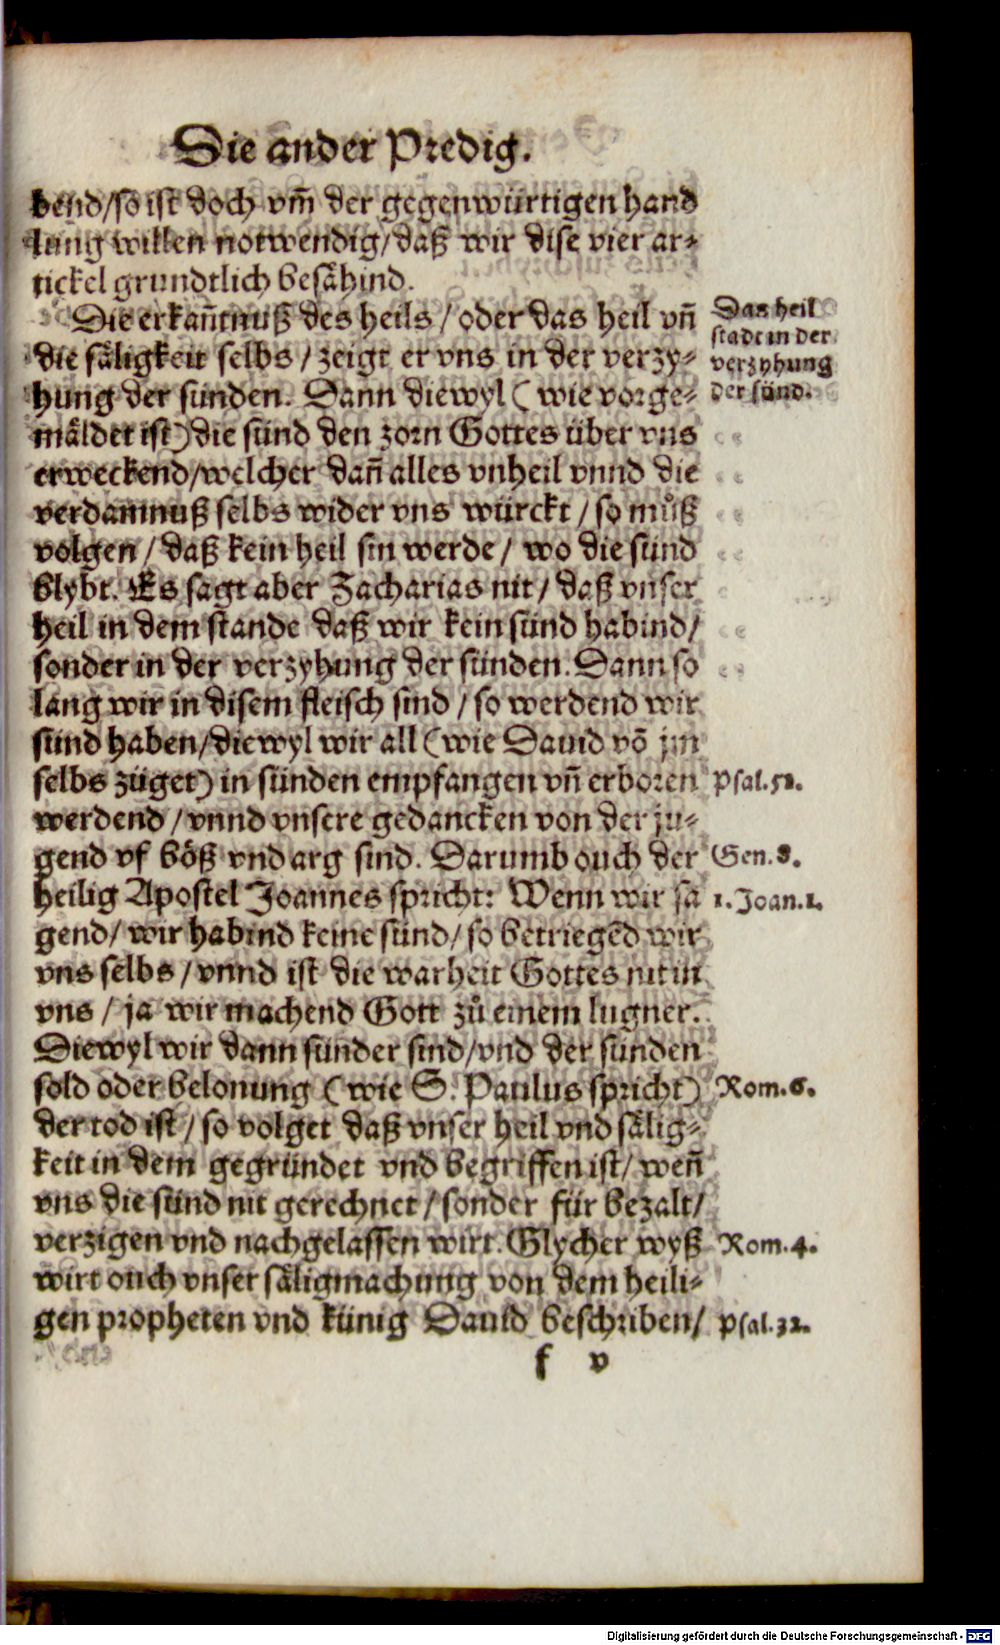 Die ander Predig.
bend/so ist doch vm̃ der gegenwürtigen hand
lung willen notwendig/daß wir dise vier ar⸗
tickel grundtlich besähind.
Die erkañtnuß des heils / oder das heil vñ
die säligkeit selbs / zeigt er vns in der verzy⸗
hung der sünden. Dann diewyl ( wie vorge⸗
mäldet ist) die sünd den zorn Gottes über vns
erweckend/welcher dañ alles vnheil vnnd die
verdamnuß selbs wider vns würckt / so můß
volgen / daß kein heil sin werde / wo die sünd
blybt. Es sagt aber Zacharias nit / daß vnser
heil in dem stande daß wir kein sünd habind/
sonder in der verzyhung der sünden. Dann so
lang wir in disem fleisch sind / so werdend wir
sünd haben/diewyl wir all ( wie Dauid võ jm
selbs züget) in sünden empfangen vñ erboren
werdend / vnnd vnsere gedancken von der ju⸗
gend vf böß vnd arg sind. Darumb ouch der
heilig Apostel Joannes spricht: Wenn wir sa
gend/ wir habind keine sünd/ so betriegẽd wir
vns selbs / vnnd ist die warheit Gottes nit in
vns / ja wir machend Gott zů einem lugner.
Diewyl wir dann sünder sind/vnd der sünden
sold oder belonung ( wie S. Paulus spricht)
der tod ist / so volget daß vnser heil vnd sälig⸗
keit in dem gegründet vnd begriffen ist/ weñ
vns die sünd nit gerechnet / sonder für bezalt/
verzigen vnd nachgelassen wirt. Glycher wyß
wirt ouch vnser säligmachung von dem heili⸗
gen propheten vnd künig Dauid beschriben/
f v
Das heil
stadt in der
verzyhung
der sünd.
Psal.51.
Gen.8.
1.Joan.1.
Rom.6.
Rom.4.
Psal.32.
Digitalisierung gefördert durch die Deutsche Forschungsgemeinschaft - DFG